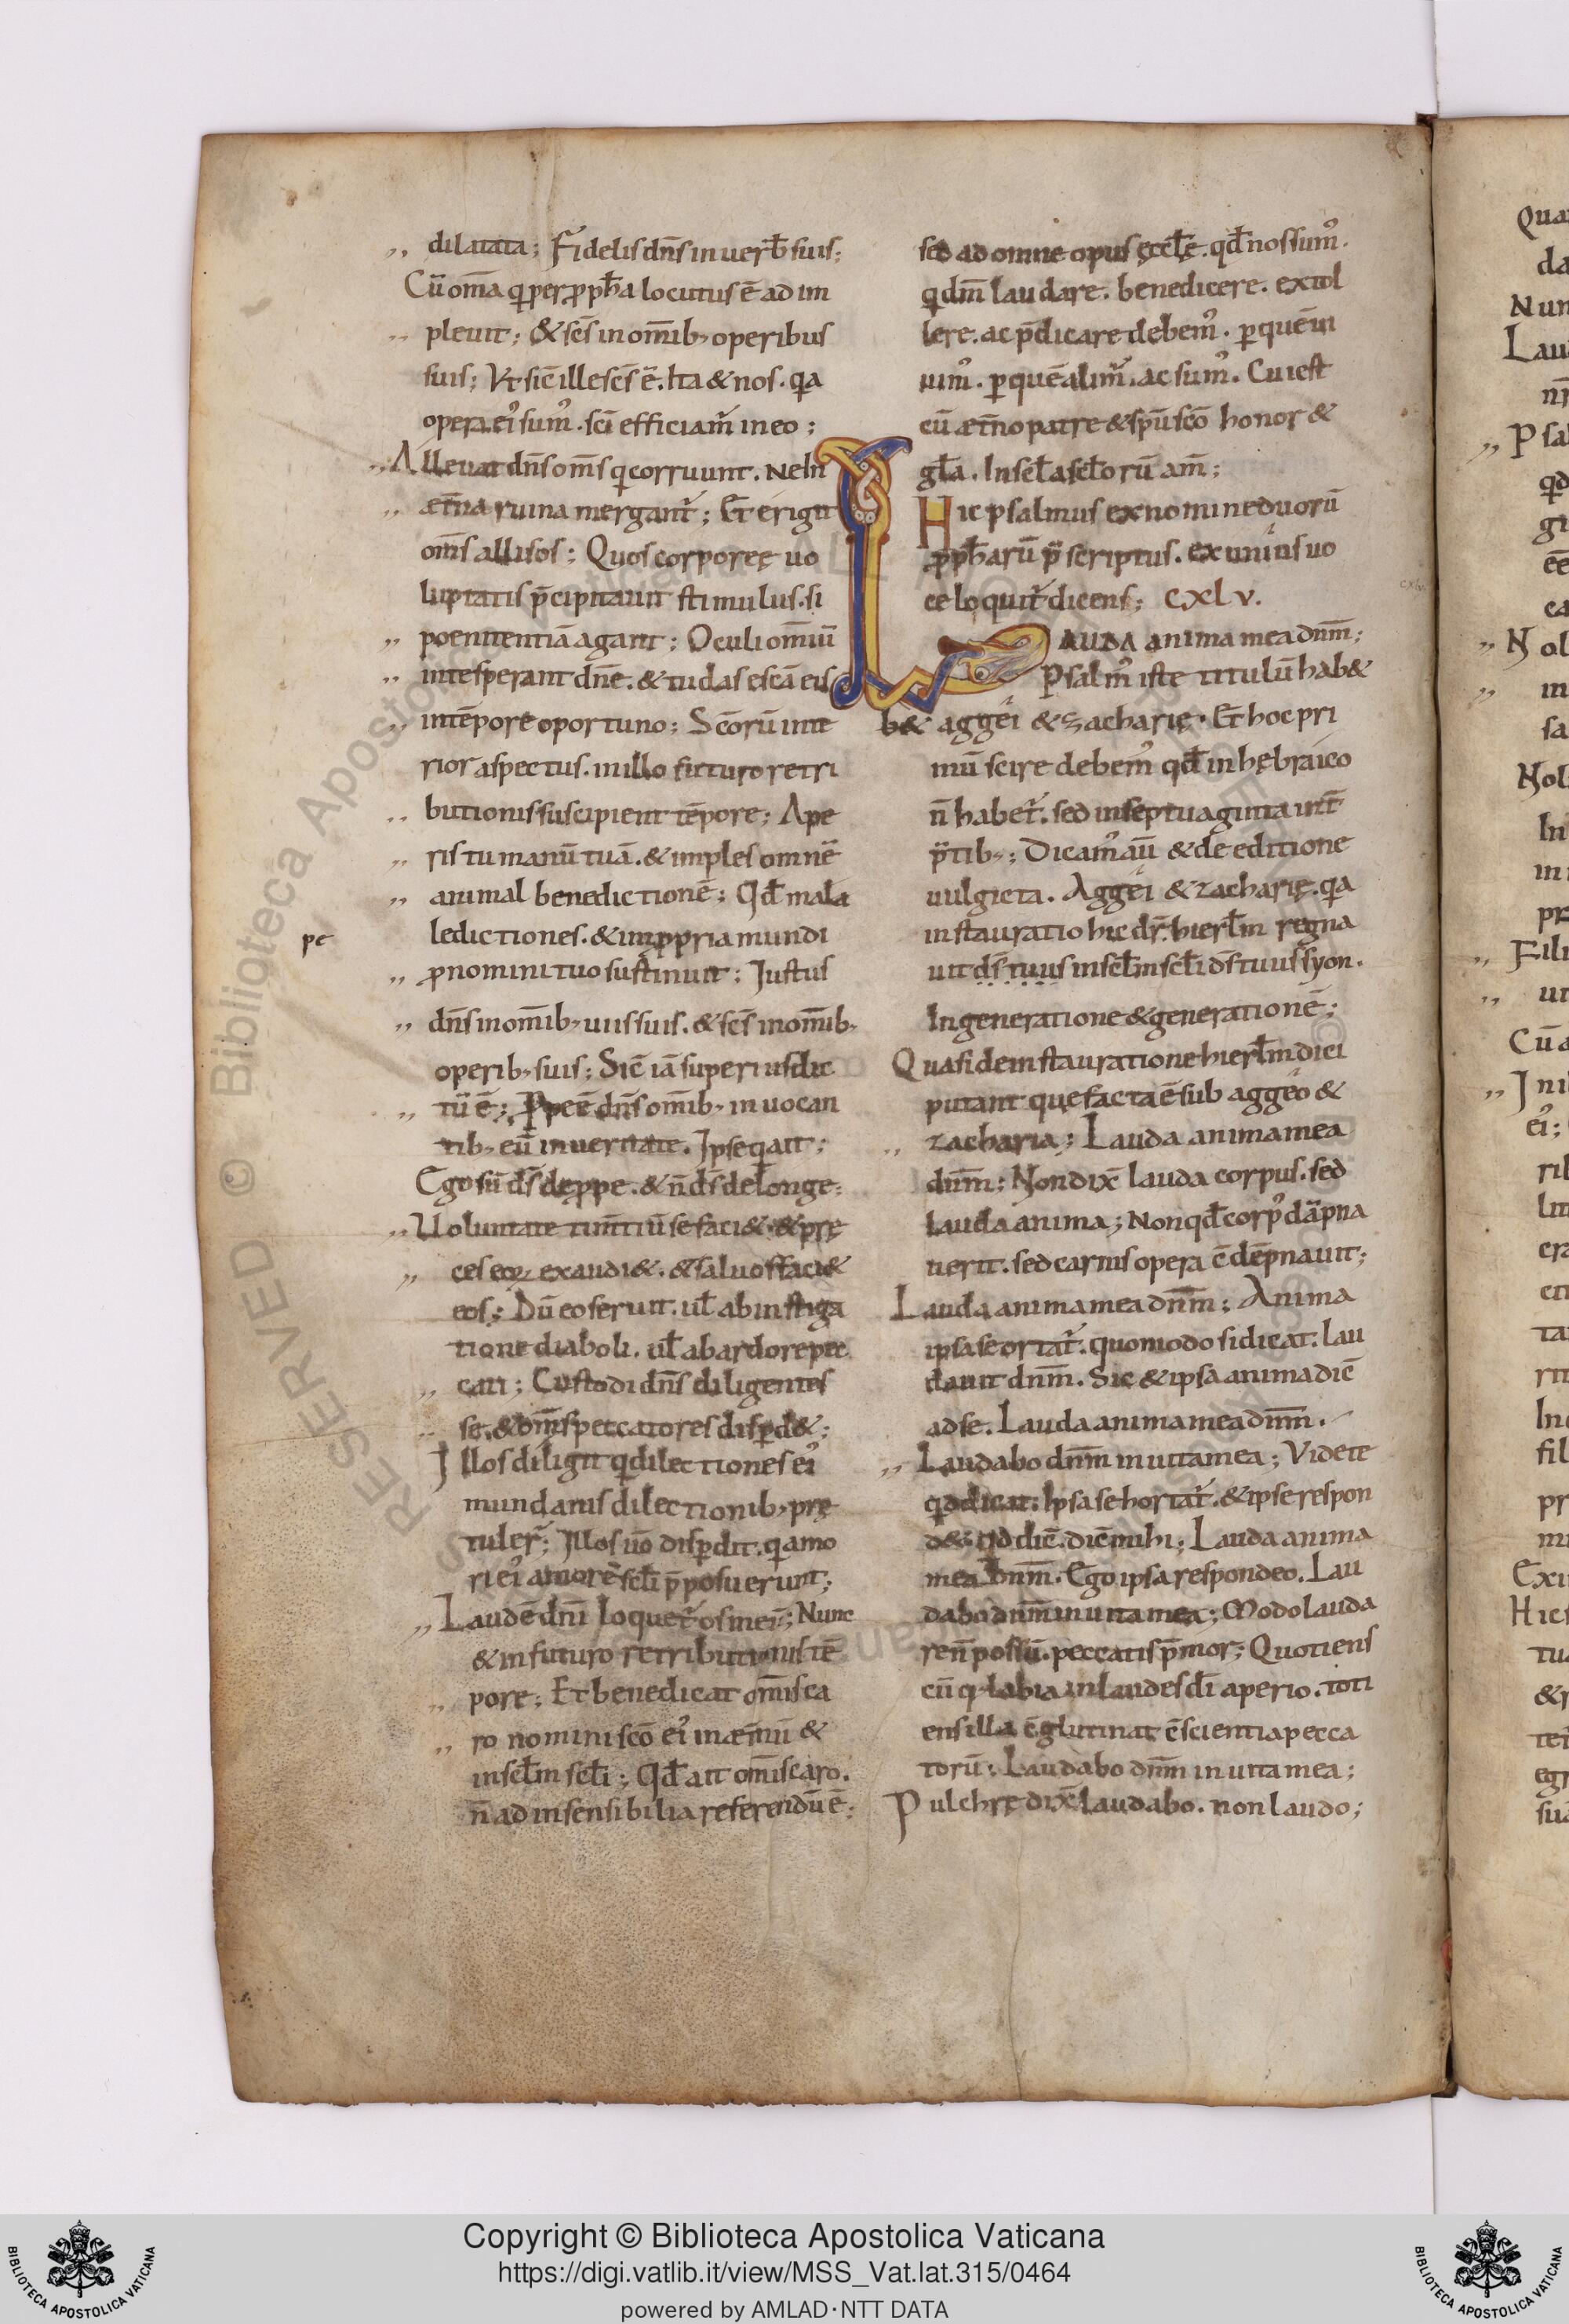 dilatata; Fidelis dn̄s in uerb̄ suis;
Cū om̄a q̇ per ꝓph̄a locutus ē ad im
pleuit; & sc̄s in om̄ib, operibus
suis; Vt sic̄ ille sc̄s ē. Ita & nos. q̇a
opera ei᾽ sum᾽. sc̄i efficiam̄ in eo;
Alleuat dn̄s om̄s q̇ corruunt. Ne In
æt̄na ruina mergant᷑; Et erigit
om̄s allisos; Quos corporeę uo
luptatis p̄cipitauit stimulus. si
poenitentiā agant; Oculi om̄iū
in te sperant dn̄e. & tu das escā eis
in tēpore oportuno; Sc̄orū inte
rior aspectus. in illo futuro retri
butionis suscipient tēpore; Ape
ris tu manū tuā. & imples omnē
animal benedictionē; Qd̄ mala
pc
ledictiones. & inꝓpria mundi
ꝓ nomini tuo sustinuit; Iustus
dn̄s in om̄ib, uiis suis. & sc̄s in om̄ib,
operib, suis; Sic̄ iā superius dic
tū ē; Ppe ē dn̄s om̄ib, inuocan
tib, eū in ueritate. Ipse q̇ ait;
Ego sū d̄s de ꝓpe. & n̄ d̄s de longe;
Voluntate tim̄tiū se faci&. & prę
ces eoꝝ exaudi&. & saluos faci&
eos; Dū eos eruit. ul̄ ab instiga
tione diaboli. ul̄ ab ardore pec
cati; Custodi dn̄s diligentes
se. & om̄s peccatores disꝑd&;
Illos diligit q̇ dilectiones ei᾽
mundanis dilectionib, prę
tuler̄; Illos uō disꝑdit. q̇ amo
ri ei᾽ amorē scl̄i p̄posuerunt;
Laudē dn̄i loquet᷑ os mei; Nunc
& in futuro retributionis tē
pore; Et benedicat om̄is ca
ro nomini sc̄o ei᾽ in æt̄nū &
in scl̄m scl̄i; Qd̄ ait om̄is caro.
n̄ ad insensibilia referendū ē;
sed ad omne opus ęccl̄ę. qd̄ nos sum᾽.
q̇ dn̄m laudare. benedicere. extol
lere. ac p̄dicare debem᾽. ꝑ quē ui
uim᾽. ꝑ quē alim᷑. ac sum᾽. Cui est
cū æt̄no patre & sp̄u sc̄o honor &
gl̄a. In scl̄a scl̄orū am̄;
Hic psalmus ex nomine duorū
ꝓph̄arū p̄scriptus. ex unius uo
ce loquit᷑ dicens; CXLV.
LAUDA anima mea dn̄m;
Psalm᾽ iste titulū hab&
b& aggei & zacharię. Et hoc pri
mū scire debem᾽ qd̄ in hębraico
n̄ habet᷑. sed in septuaginta int̄
p̄tib,; Dicam᾽ aū & de editione
uulgata. Aggei & zacharię. q̇a
instauratio hic dr̄. hierl̄m regna
uit d̄s tuus in scl̄m scl̄i d̄s tuus syon.
In generatione & generationē;
Quasi de instauratione hierl̄m dici
putant quę facta ē sub aggeo &
zacharia; Lauda anima mea
dn̄m; Non dix̄ lauda corpus. sed
lauda anima; Non qd̄ corp᾽ dāpna
uerit. sed carnis opera c̄dēpnauit;
Lauda anima mea dn̄m; Anima
ipsa se ortat᷑. quomodo si dicat. lau
dauit dn̄m. Sic & ipsa anima dic̄
ad se. Lauda anima mea dn̄m.
Laudabo dn̄m in uita mea; Videte
q̇d dicat. Ipsa se hortat᷑. & ipse respon
d&. q̇d dic̄. dic̄ mihi; Lauda anima
mea dn̄m. Ego ipsa respondeo. Lau
dabo dn̄m in uita mea; Modo lauda
re n̄ possū. peccatis p̄mor; Quotiens
cūq, labia in laudes dī aperio. toti
ens illa c̄glutinat c̄scientia pecca
torū; Laudabo dn̄m in uita mea;
Pulchrę dix̄ laudabo. non laudo;
Copyright © Biblioteca Apostolica Vaticana
https://digi.vatlib.it/view/MSS_Vat.lat.315/0464
powered by AMLAD·NTT DATA
BIBLIOTECA APOSTOLICA VATICANA
BIBLIOTECA APOSTOLICA VATICANA